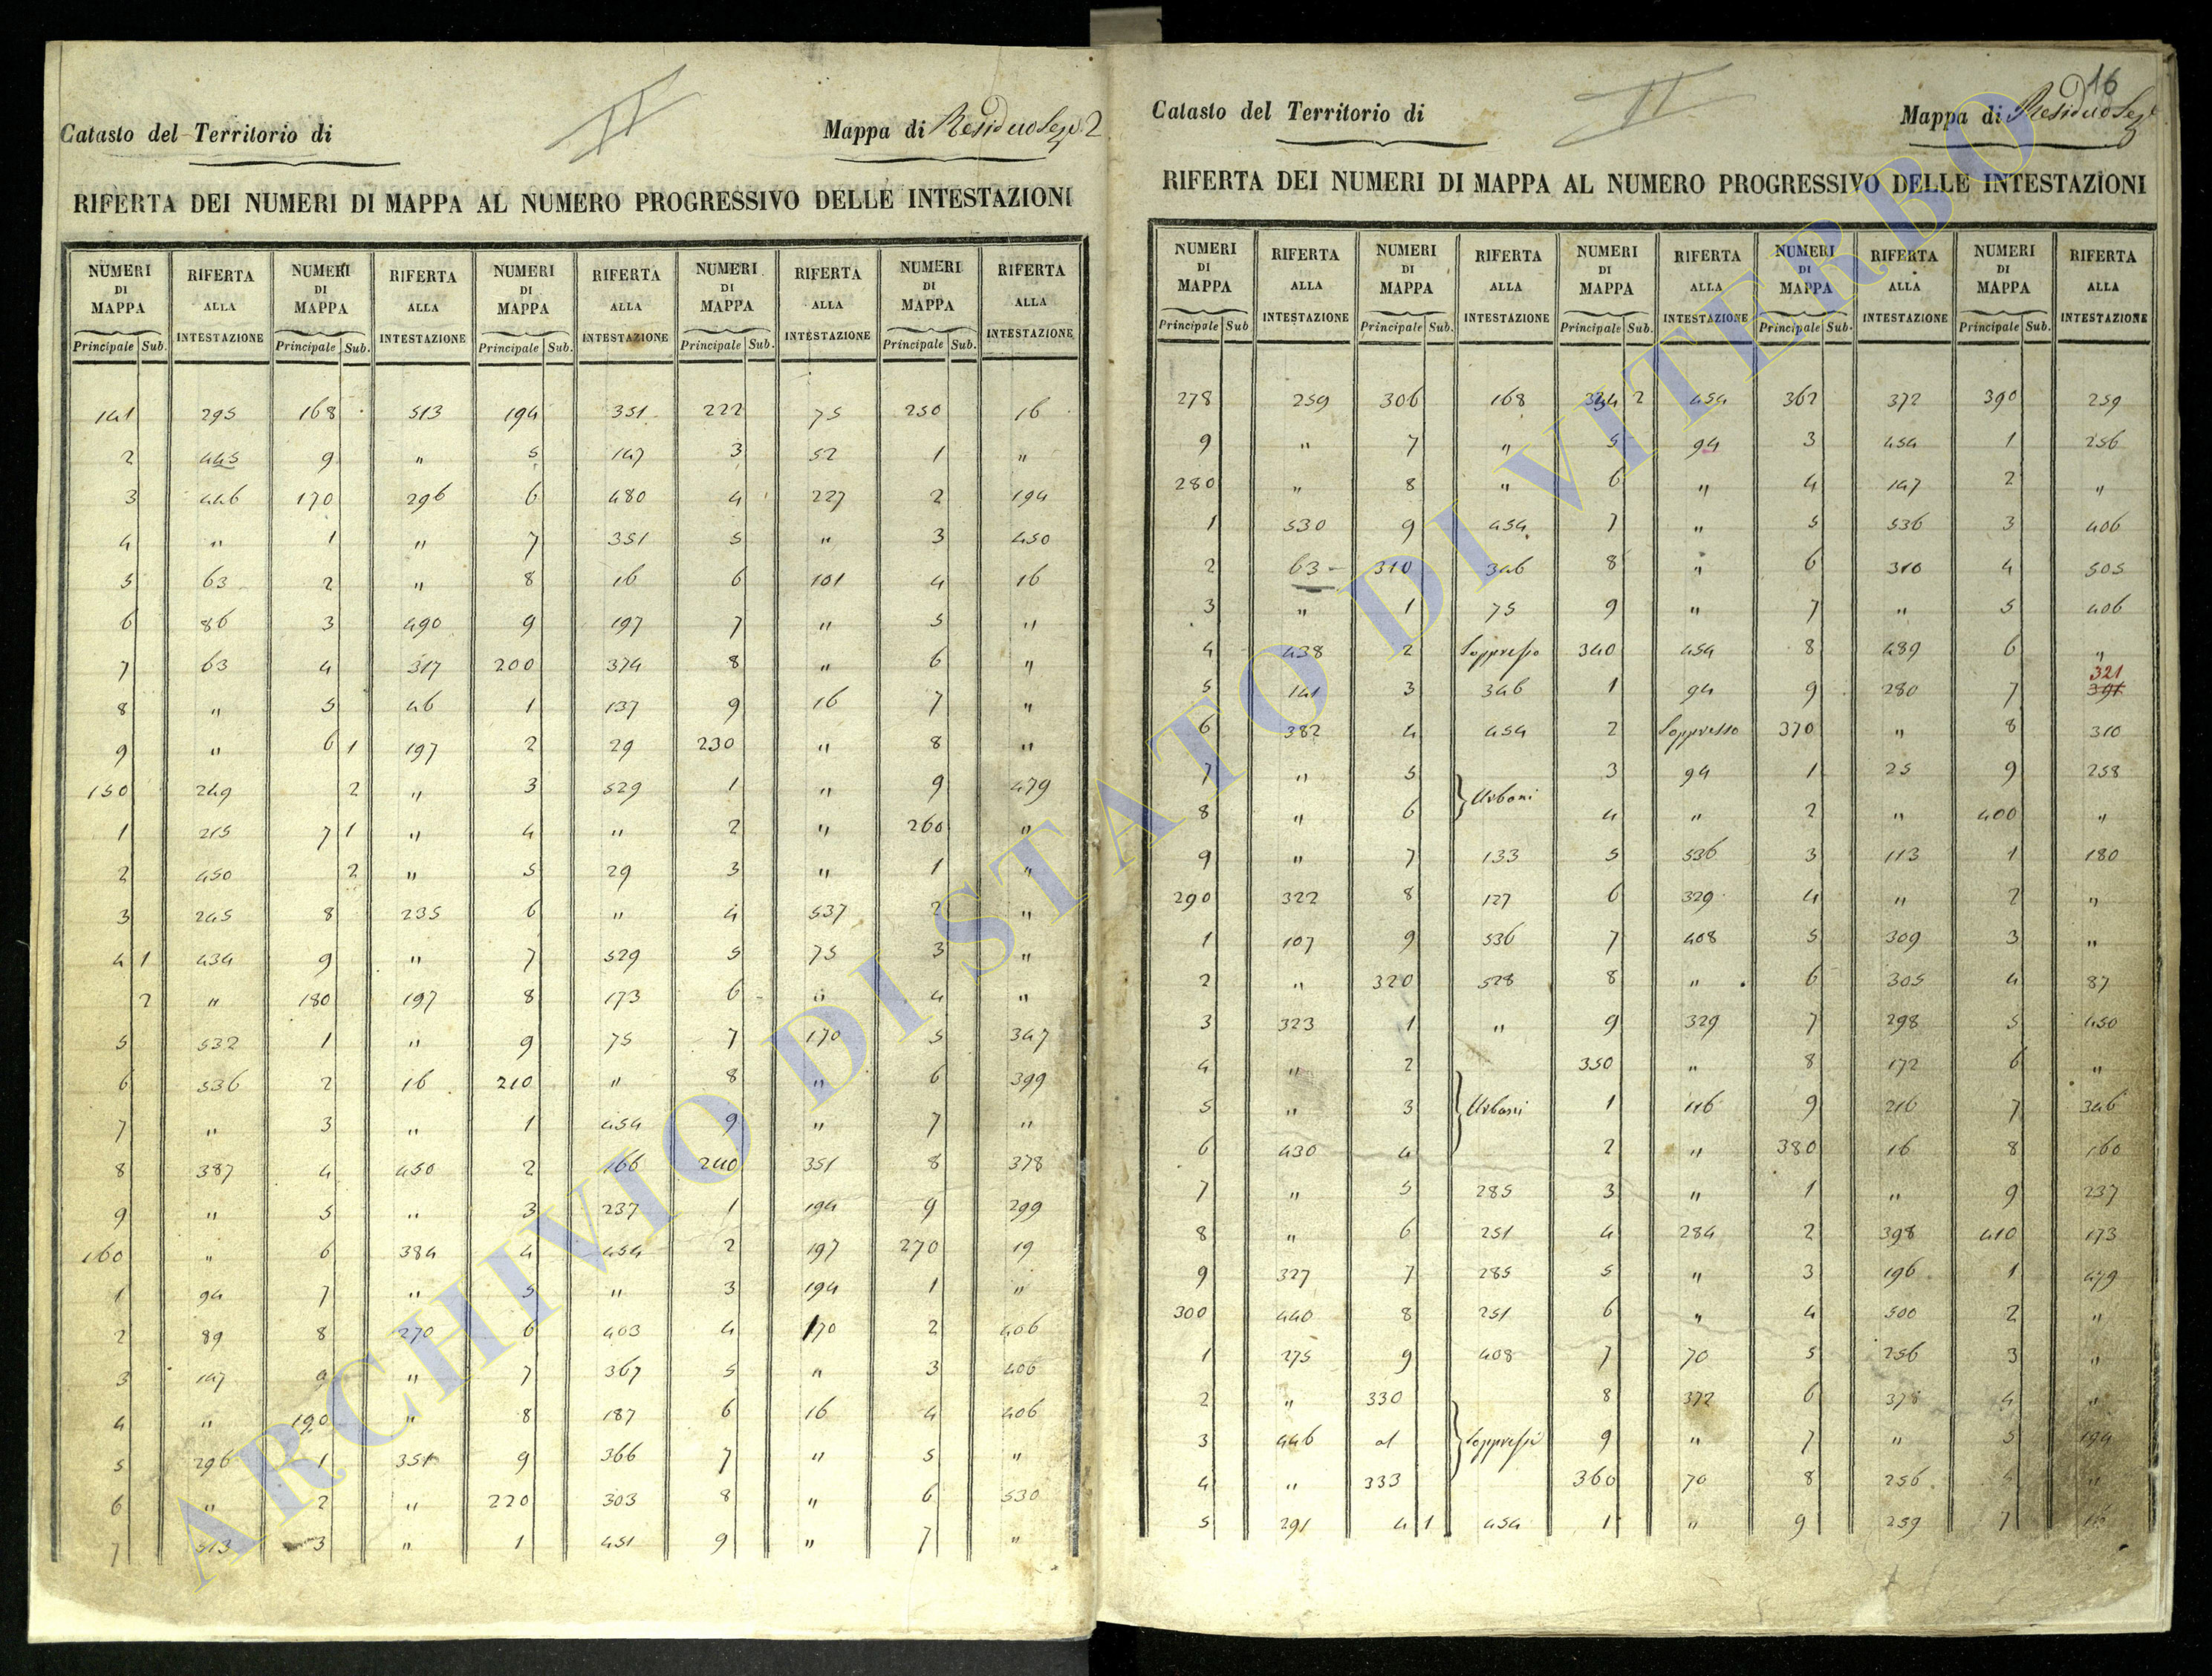 Catasto del Territorio di
II
Mappa di Residuo Sez. 2
RIFERTA DEI NUMERI DI MAPPA AL NUMERO PROGRESSIVO DELLE INTESTAZIONI
NUMERI DI MAPPA RIFERTA ALLA INTESTAZIONE NUMERI DI MAPPA RIFERTA ALLA INTESTAZIONE NUMERI DI MAPPA RIFERTA ALLA INTESTAZIONE NUMERI DI MAPPA RIFERTA ALLA INTESTAZIONE NUMERI DI MAPPA RIFERTA ALLA INTESTAZIONE
Principale Sub. Principale Sub. Principale Sub. Principale Sub. Principale Sub.
141 295 168 513 194 351 222 75 250 16
2 445 9 " 5 147 3 52 1 "
3 446 170 296 6 480 4 227 2 194
4 " 1 " 7 351 5 " 3 450
5 63 2 " 8 16 6 101 4 16
6 86 3 490 9 197 7 " 5 "
7 63 4 317 200 374 8 " 6 "
8 " 5 46 1 137 9 16 7 "
9 " 6 1 197 2 29 230 " 8 "
150 249 2 " 3 529 1 " 9 479
1 215 7 1 " 4 " 2 " 260 "
2 450 2 " 5 29 3 " 1 "
3 245 8 235 6 " 4 537 2 "
4 1 434 9 " 7 529 5 75 3 "
2 " 180 197 8 173 6 " 4 "
5 532 1 " 9 75 7 170 5 347
6 536 2 16 210 " 8 " 6 399
7 " 3 " 1 454 9 " 7 "
8 387 4 450 2 166 240 351 8 378
9 " 5 " 3 237 1 194 9 299
160 " 6 384 4 454 2 197 270 19
1 94 7 " 5 " 3 194 1 "
2 89 8 270 6 403 4 170 2 406
3 147 9 " 7 367 5 " 3 406
4 " 190 " 8 187 6 16 4 406
5 296 1 351 9 366 7 " 5 "
6 " 2 " 220 303 8 " 6 530
7 513 3 " 1 451 9 " 7 "
16
Catasto del Territorio di
II
Mappa di Residuo Sez.
RIFERTA DEI NUMERI DI MAPPA AL NUMERO PROGRESSIVO DELLE INTESTAZIONI
NUMERI DI MAPPA RIFERTA ALLA INTESTAZIONE NUMERI DI MAPPA RIFERTA ALLA INTESTAZIONE NUMERI DI MAPPA RIFERTA ALLA INTESTAZIONE NUMERI DI MAPPA RIFERTA ALLA INTESTAZIONE NUMERI DI MAPPA RIFERTA ALLA INTESTAZIONE
Principale Sub Principale Sub. Principale Sub. Principale Sub. Principale Sub.
278 259 306 168 334 2 454 362 372 390 259
9 " 7 " 5 94 3 454 1 256
280 " 8 " 6 " 4 147 2 "
1 530 9 454 7 " 5 536 3 406
2 63 310 346 8 " 6 310 4 505
3 " 1 75 9 " 7 " 5 406
4 438 2 Soppresso 340 454 8 489 6 "
5 141 3 346 1 94 9 280 7 391 321
6 382 4 454 2 Soppresso 370 " 8 310
7 " 5 Urbani 3 94 1 25 9 258
8 " 6 4 " 2 " 400 "
9 " 7 133 5 536 3 113 1 180
290 322 8 127 6 329 4 " 2 "
1 107 9 536 7 408 5 309 3 "
2 " 320 528 8 " 6 305 4 87
3 323 1 " 9 329 7 298 5 450
4 " 2 350 " 8 172 6 "
5 " 3 Urbani 1 116 9 216 7 346
6 430 4 2 " 380 16 8 160
7 " 5 285 3 " 1 " 9 237
8 " 6 251 4 284 2 398 410 173
9 327 7 285 5 " 3 196 1 479
300 440 8 251 6 " 4 500 2 "
1 275 9 408 7 70 5 256 3 "
2 " 330 8 372 6 378 4 "
3 446 al Soppressi 9 " 7 " 5 194
4 " 333 360 70 8 256 "
5 291 4 1 454 1 " 9 259 7 16
ARCHIVIO DI STATO DI VITERBO